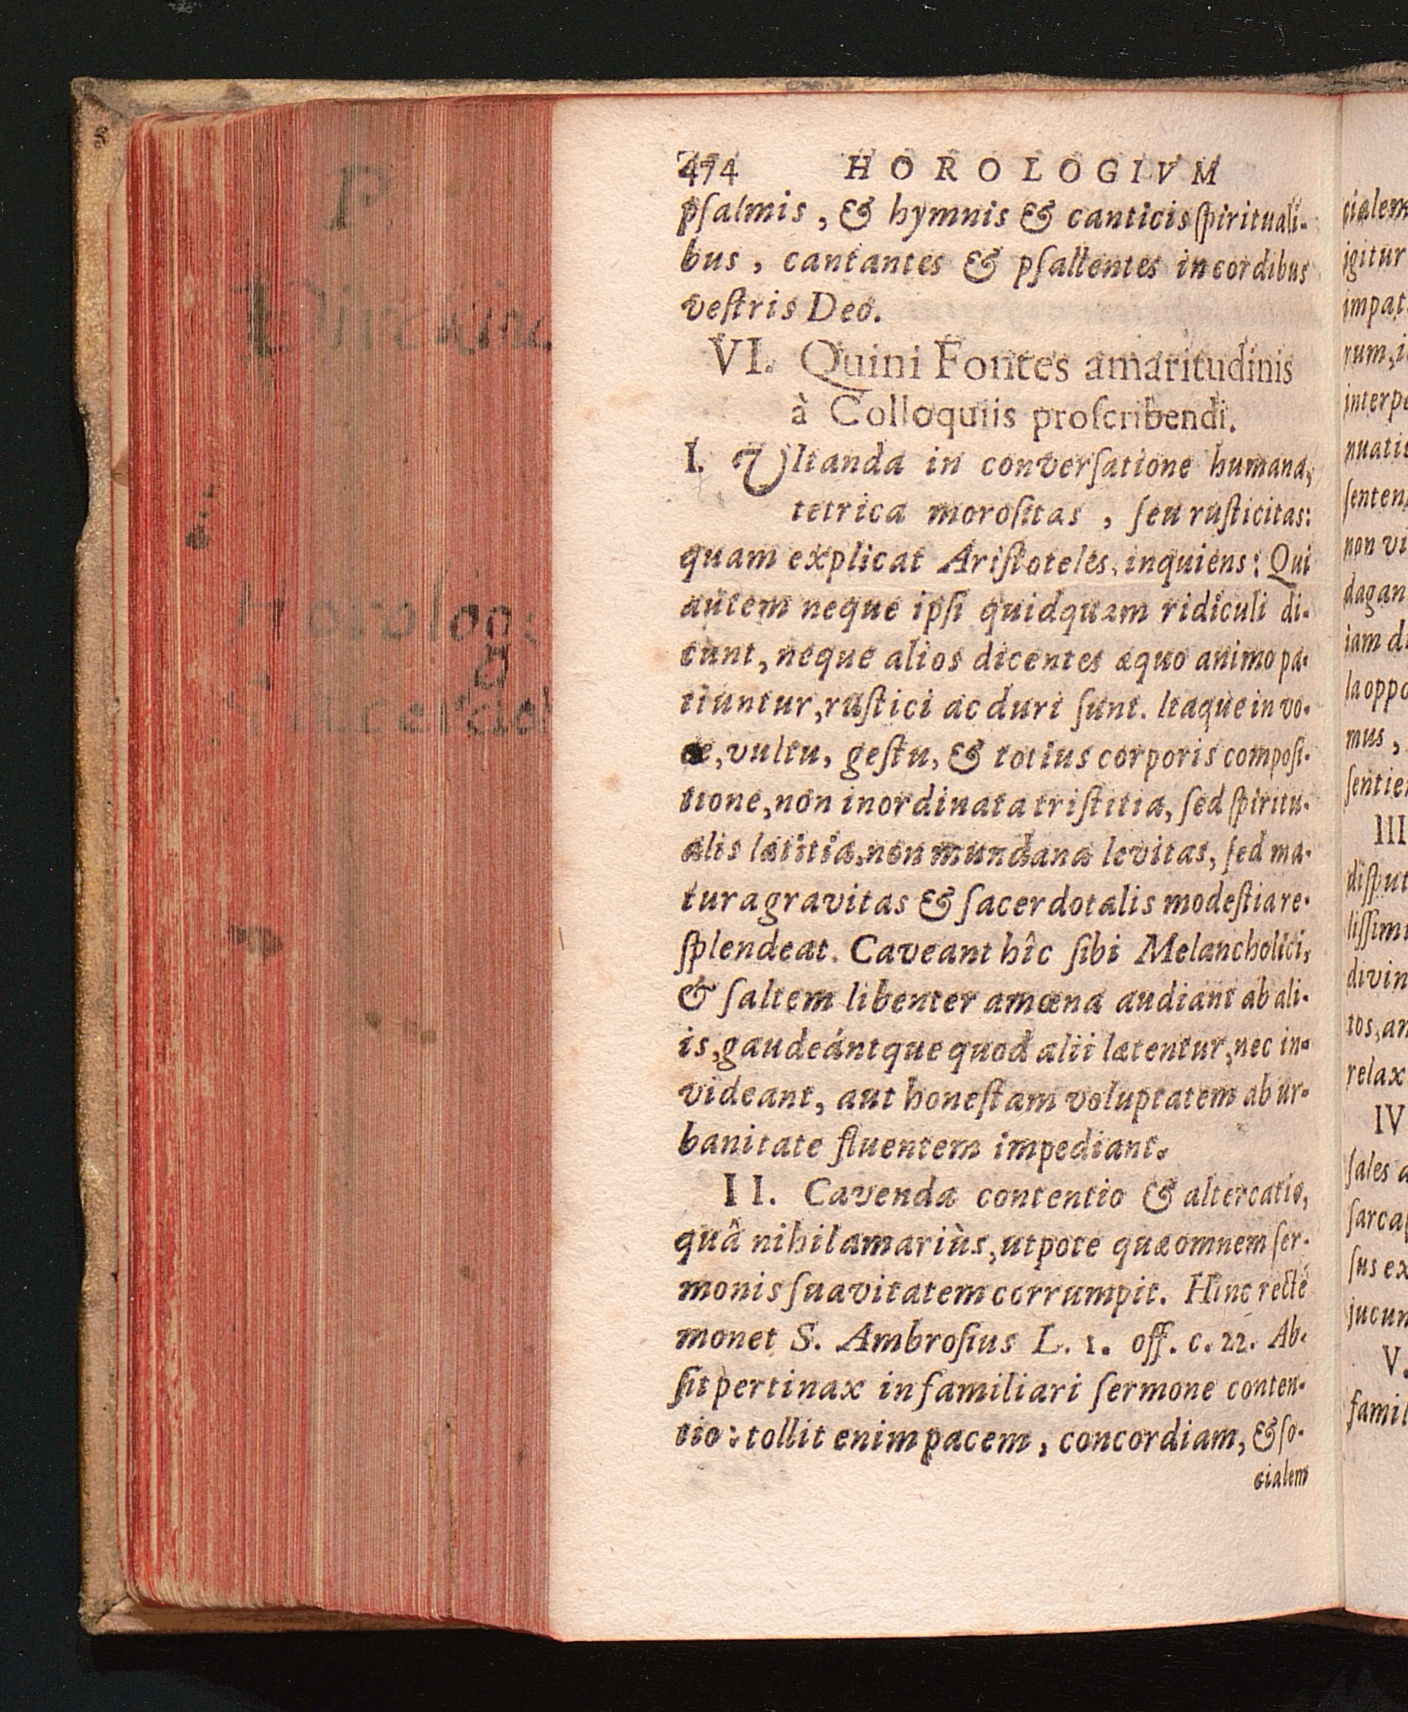 474 HOROLOGIVM
pſalmis, & hymnis & canticis ſpirituali-
bus, cantantes & pſallentes in cordibus
veſtris Deo.
VI. Quini Fontes amaritudinis
à Colloquiis proſcribendi.
I. VItanda in converſatione humana,
tetrica moroſitas, ſeu ruſticitas:
quam explicat Ariſtoteles, inquiens: Qui
autem neque ipſi quidquam ridiculi di-
cunt, neque alios dicentes æquo animo pa-
tiuntur, ruſtici ac duri ſunt. Itaque in vo-
ce, vultu, geſtu, & totius corporis compoſi-
tione, non inordinata triſtitia, ſed ſpiritu-
alis lætitia, non mundana levitas, ſed ma-
tura gravitas & ſacerdotalis modeſtia re-
ſplendeat. Caveant hîc ſibi Melancholici,
& ſaltem libenter amœna audiant ab ali-
is, gaudeántque quod alii lætentur, nec in-
videant, aut honeſtam voluptatem ab ur-
banitate fluentem impediant.
II. Cavenda contentio & altercatio,
quâ nihil amariùs, utpote quæ omnem ſer-
monis ſuavitatem corrumpit. Hinc rectè
monet S. Ambroſius L. 1. off. c. 22. Ab-
ſit pertinax in familiari ſermone conten-
tio: tollit enim pacem, concordiam, & ſo-
cialem
P
Horolog:
cialem
igitur
impat
rum,
interp
nuatio
ſenten
non vi
dagan
iam di
la oppo
mus,
ſentie
III
diſput
liſſim
divin
tos, an
relax
IV
ſales a
ſarca
ſus ex
jucun
V.
famil